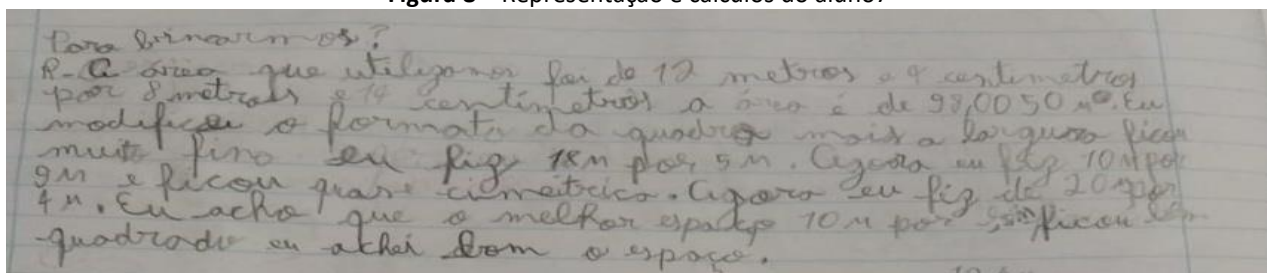 Para brincarmos?
R- A área que utilizamos foi de 12 metros e 4 centimetros
por 8 metros e 14 centimetros a área é de 98,0050 m². Eu
modifiquei o formato da quadra mais a largura ficou
muito fino eu fiz 18m por 5m. Agora eu fiz 10m por
9m e ficou quase cimetrico. Agora eu fiz de 20m por
4m. Eu acho que o melhor espaço 10m por ficou
quadrado eu achei bom o espaço.